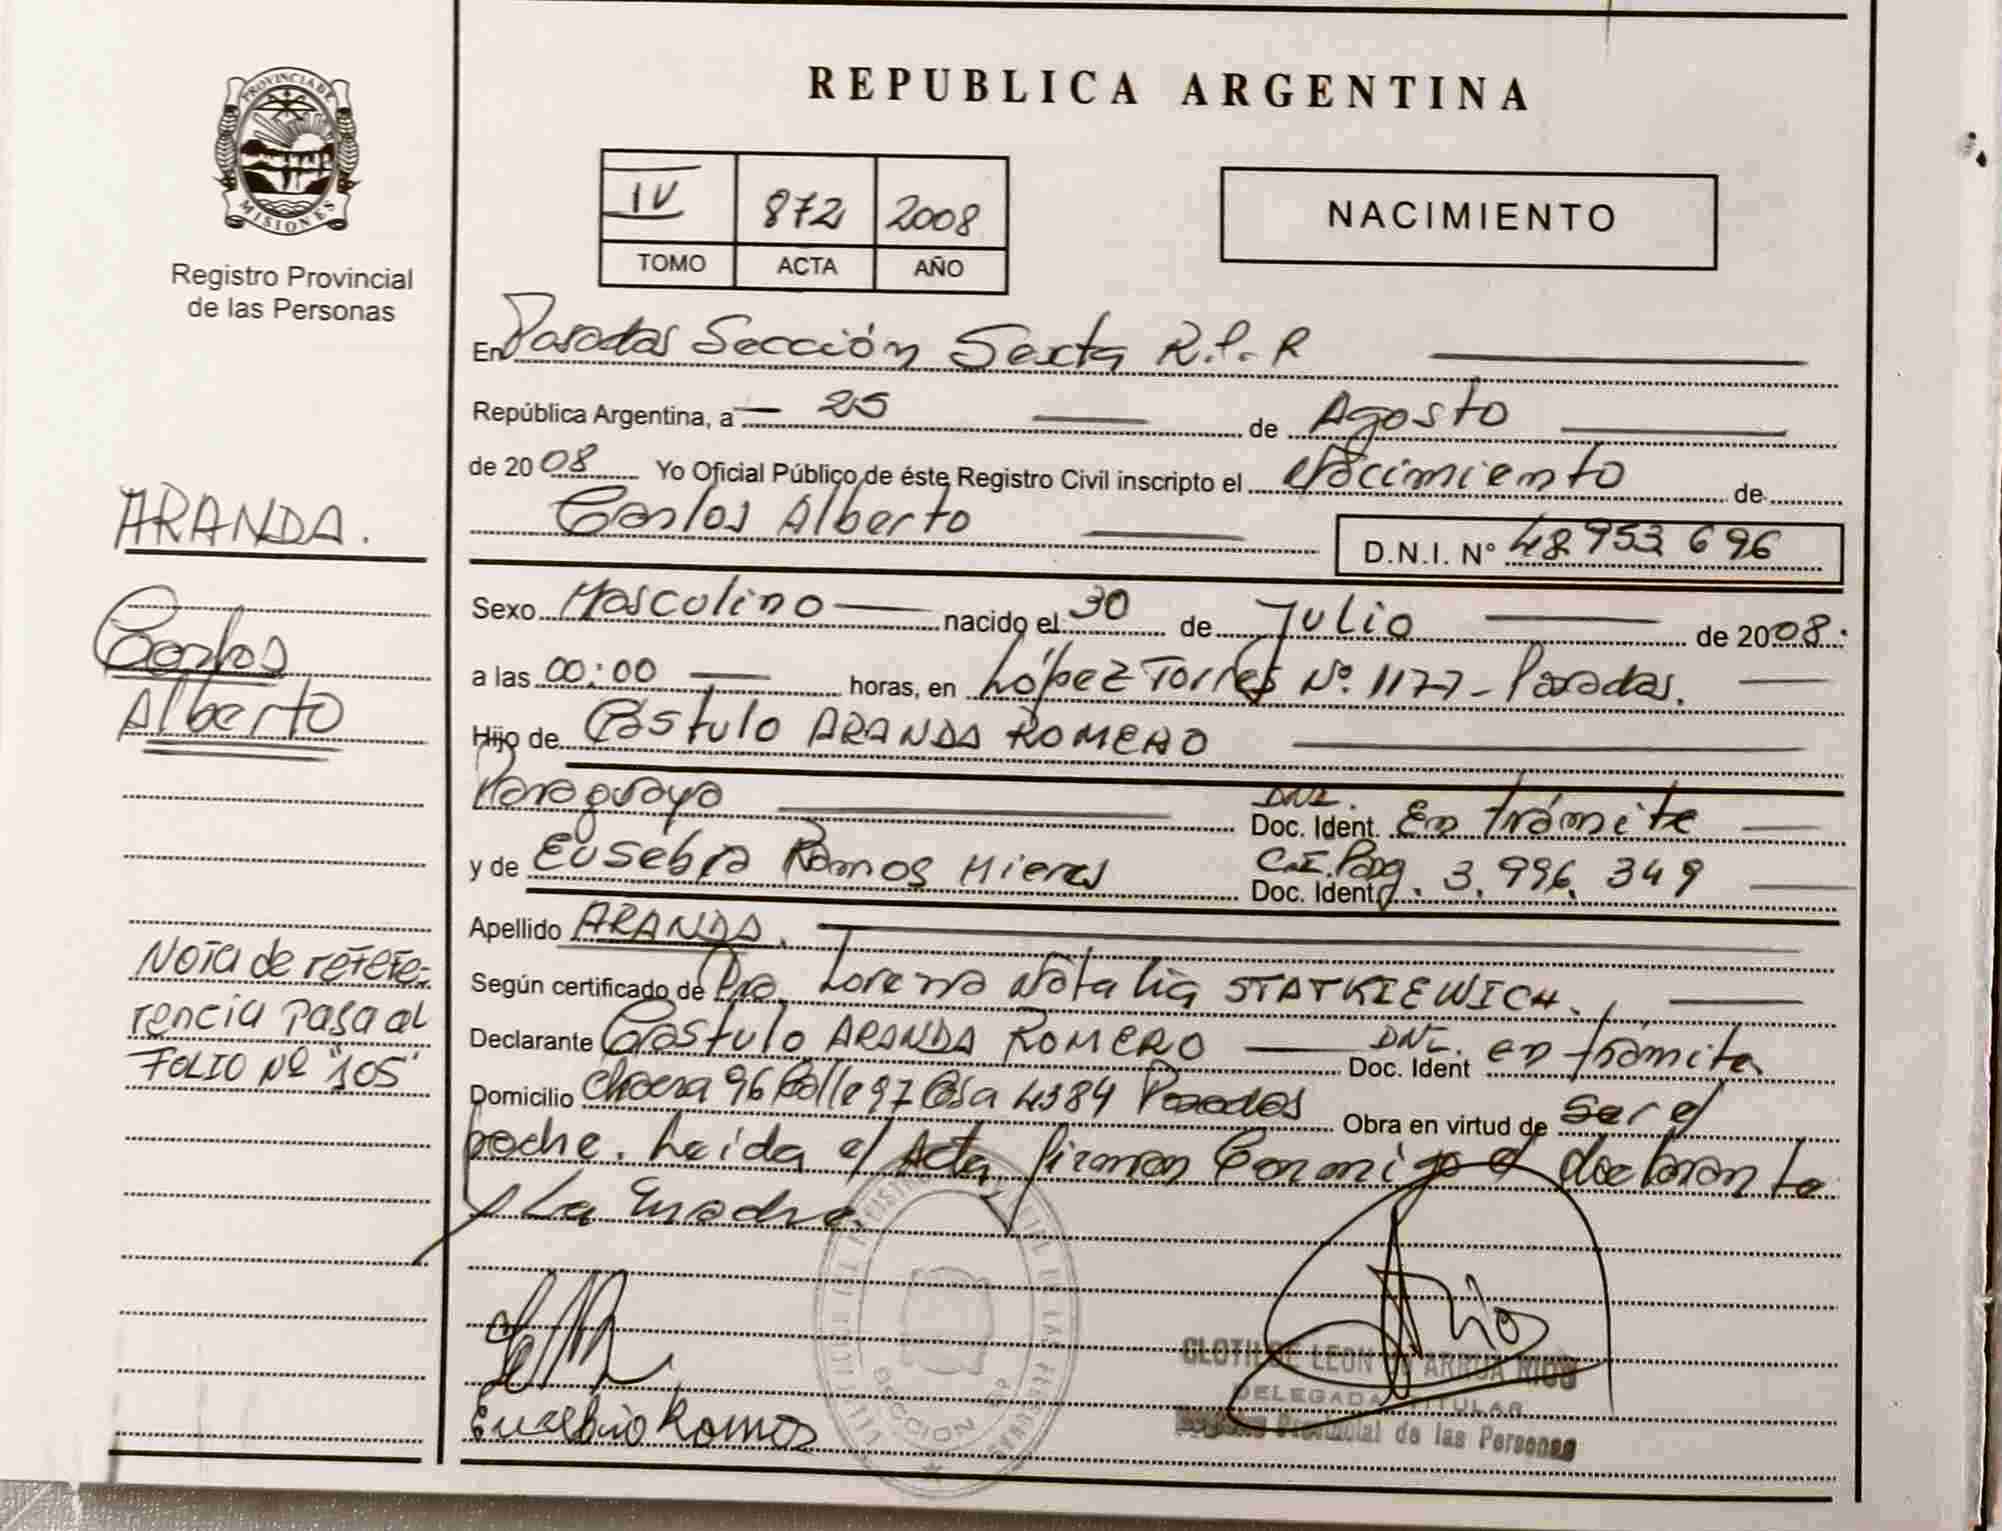 PROVINCIA DE
MISIONES
Registro Provincial
de las Personas
REPUBLICA ARGENTINA
IV 872 2008
TOMO ACTA AÑO
NACIMIENTO
En Posadas Sección Sexta R.P.R
República Argentina, a 25 de Agosto
de 2008 Yo Oficial Público de éste Registro Civil inscripto el Nacimiento de
Carlos Alberto
D.N.I. N° 48.953.696
Sexo Masculino nacido el 30 de Julio de 2008.
a las 00:00 horas, en López Torres Nº. 1177- Posadas.
Hijo de Cástulo ARANDA ROMERO
Paraguaya DNI. Doc. Ident. En trámite
y de Eusebia Ramos Mieres C.I. Pag. Doc. Ident. 3.996.349
Apellido ARANDA.
Según certificado de Dra. Lorena Natalia STATKIEWICH.
Declarante Cástulo ARANDA ROMERO DNI. Doc. Ident en trámite
Domicilio Chacra 96 Calle 97 Casa 4384 Posadas Obra en virtud de Ser el
padre. Leída el Acta, firman Conmigo el declarante
y La madre.
ARANDA.
Carlos
Alberto
Nota de refere-
rencia Pasa al
FOLIO Nº "105"
Eusebia Ramos
Rios
CLOTILDE LEON ARRUA RIOS
DELEGADA TITULAR
Registro Provincial de las Personas
SECCION 6ª